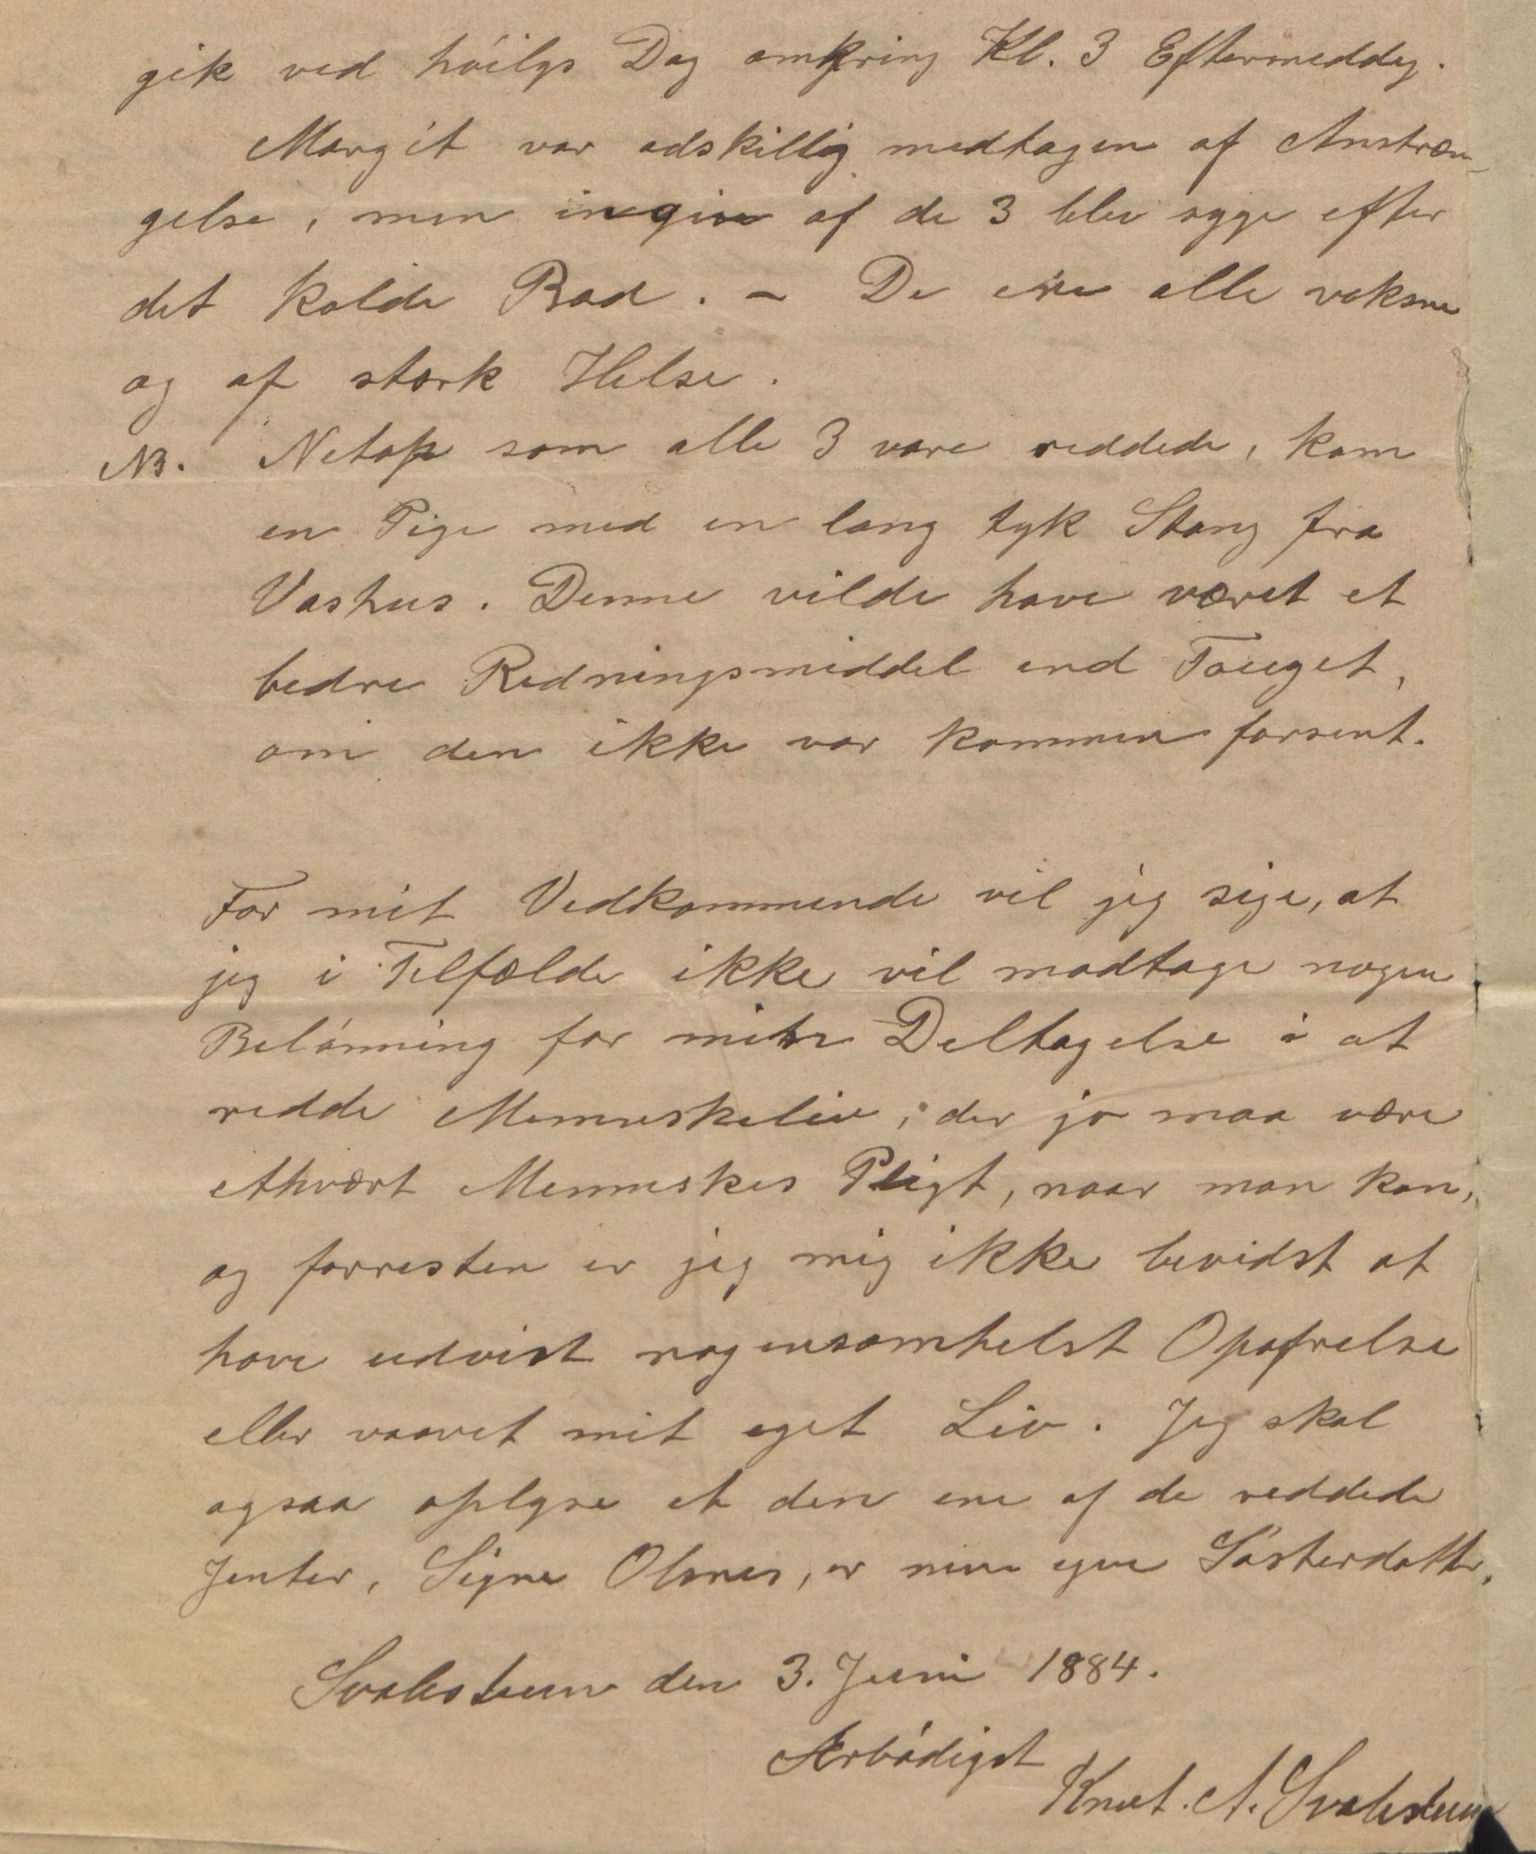 gik ved höilys Dag omkring Kl. 3 Eftermeddg.
Margit var adskillig medtagen af Anstræn-
gelse, men ingin af de 3 blev syge efter
det kolde Bad. - De ere alle voksne
og af stærk Helse.
NB. Netop som alle 3 vare reddede, kom
en Pige med en lang tyk Stang fra
Vashus. Denne vilde have været et
bedre Redningsmiddel end Touget,
om den ikke var kommen forsent.
For mit Vedkommende vil jeg sige, at
jeg i Tilfælde ikke vil modtage nogen
Belönning for min Deltagelse i at
redde Menneskeliv, der jo maa være
ethvært Menneskes Pligt, naar man kan,
og forresten er jeg mig ikke bevidst at
have udvist nogensomhelst Opofrelse
eller vaavet mit eget Liv. Jeg skal
ogsaa oplyse at den ene af de reddede
Jenter, Signe Olsnes, er min egen Sösterdatter.
Svalestuen den 3. Juni 1884.
Ærbödigst
Knut. A. Svalestuen